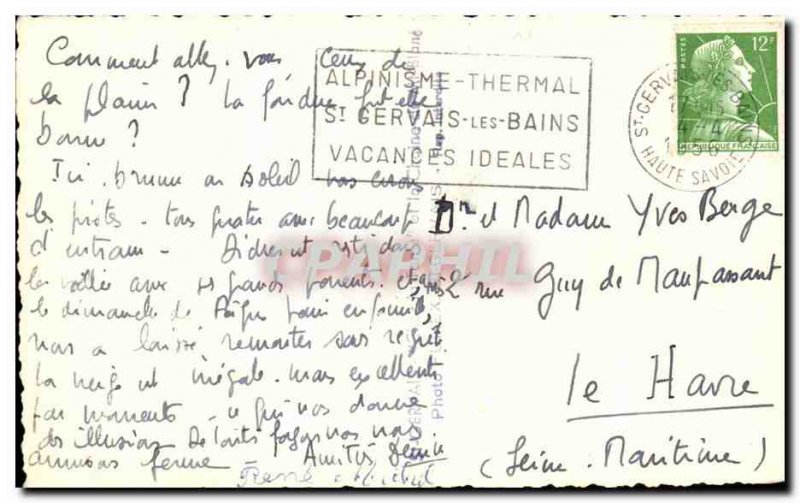 Comment allez-vous ceux de
la plaine ? La fondue fut-elle
bonne ?
Ici, brume ou soleil nous
les pistes - tous quatre avec beaucoup
d'entrain - est resté dans
la vallée avec grands parents. et après
le dimanche de Pâques en famille,
nous a laissé remonter sans regret
La neige est inégale. mais excellente
par moments - ce qui nous donne
des illusions De toutes façons nous nous
amusons ferme - Amitiés
ALPINISME-THERMAL
ST GERVAIS-LES-BAINS
VACANCES IDEALES
POSTES 12F
REPUBLIQUE FRANÇAISE
ST-GERVAIS-LES-BAINS
HAUTE SAVOIE
Dr et Madame Yves Berge
2 rue Guy de Maupassant
le Havre
(Seine-Maritime)
CPAPHIL